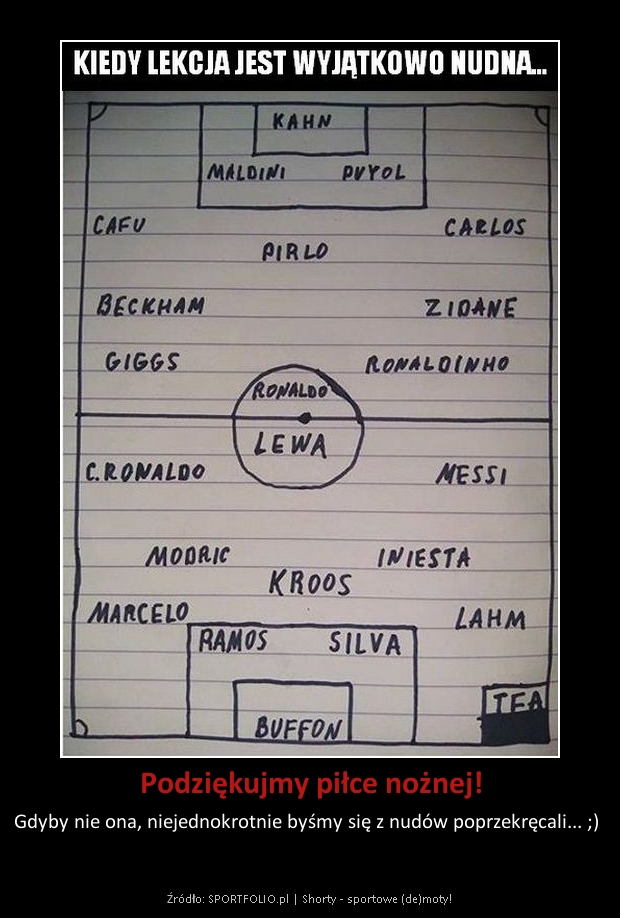 KIEDY LEKCJA JEST WYJĄTKOWO NUDNA...
KAHN
MALDINI PUYOL
CAFU CARLOS
PIRLO
BECKHAM ZIDANE
GIGGS RONALDINHO
RONALDO
LEWA
C.RONALDO MESSI
MODRIC INIESTA
KROOS
MARCELO LAHM
RAMOS SILVA
TEA
BUFFON
Podziękujmy piłce nożnej!
Gdyby nie ona, niejednokrotnie byśmy się z nudów poprzekręcali... ;)
Źródło: SPORTFOLIO.pl | Shorty - sportowe (de)moty!